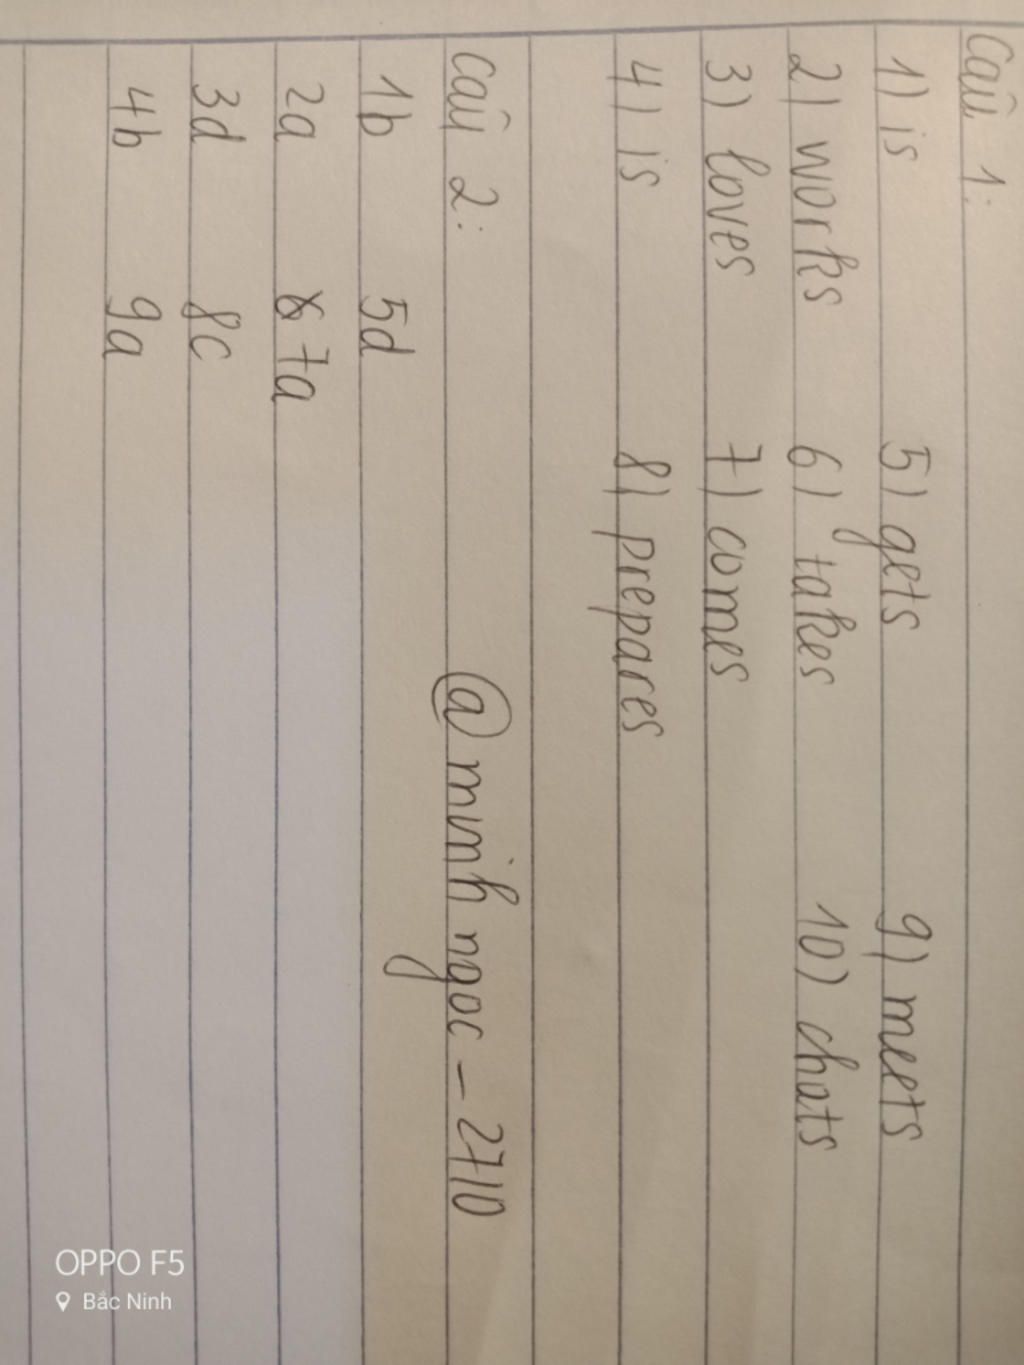 Câu 1:
1) is 5) gets 9) meets
2) works 6) takes 10) chats
3) loves 7) comes
4) is 8) prepares
Câu 2: @minhngoc-2710
1b 5d
2a 7a
3d 8c
4b 9a
OPPO F5
Bắc Ninh